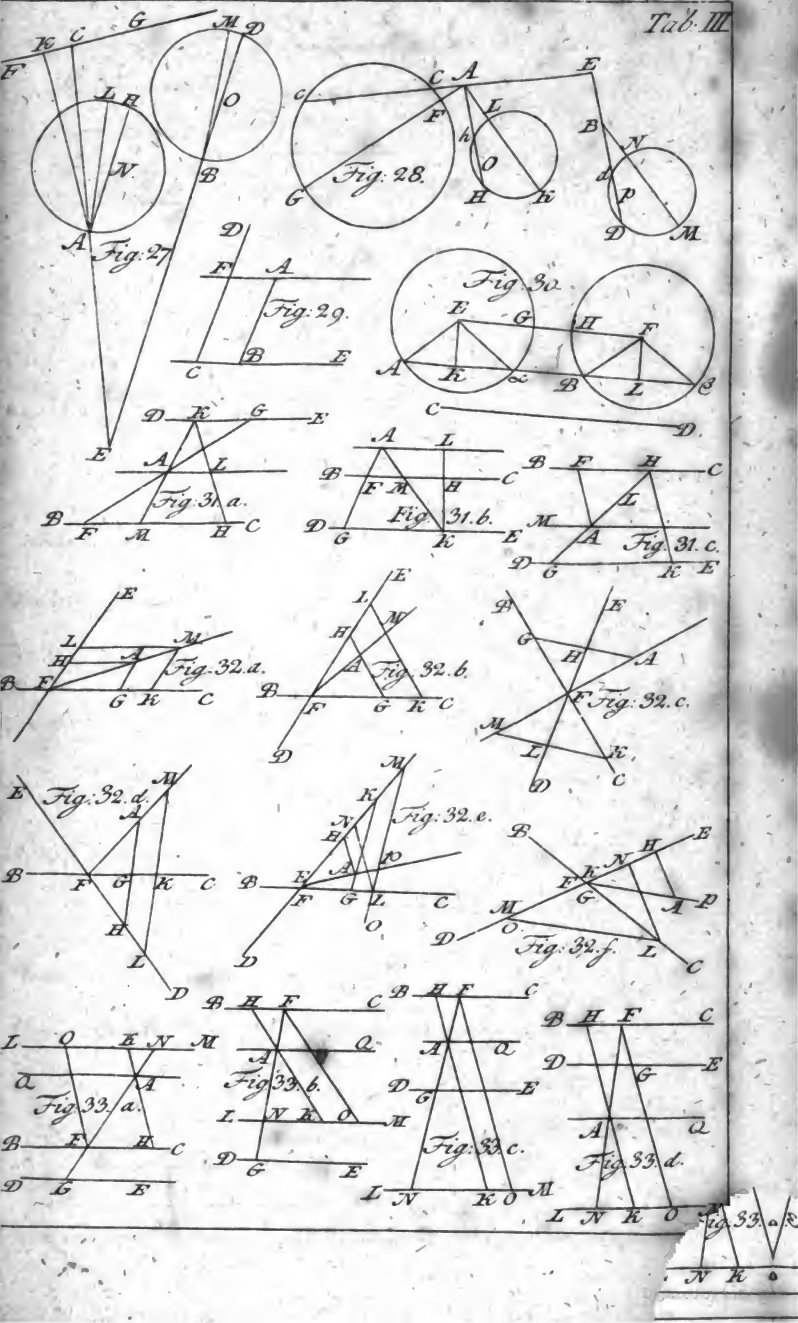 Tab. III
K C G M D
F L H O
N B
A Fig: 27
E
C C A E
F L B N
h O d p
G Fig: 28. H K D M
D
F A
Fig: 29.
C B E
Fig. 30.
E G H F
A K α B L β
C D
D K G E
A L
Fig. 31. a.
B F M H C
A L
B F M H C
Fig. 31. b.
D G K E
B F H C
L
M A
Fig. 31. c.
D G K E
E
L M
H A
Fig. 32. a.
B F G K C
E
L M
H
A Fig: 32. b.
B F G K C
D
B E
G H A
F Fig: 32. c.
M L K
D C
E Fig: 32. d. M
A
B F G K C
H
L
D
M
K
N Fig: 32. e.
H
A p
B E
F G L C
O
D
B E
N H
F K
G A P
M
O L
D Fig: 32. f. C
L O K N M
Q A
Fig: 33. a.
B F H C
D G E
B H F C
A Q
Fig: 33. b.
L N K O M
D G E
B H F C
A Q
D G E
Fig: 33. c.
L N K O M
B H F C
D G E
A Q
Fig: 33. d.
L N K O
ig. 33.
N K